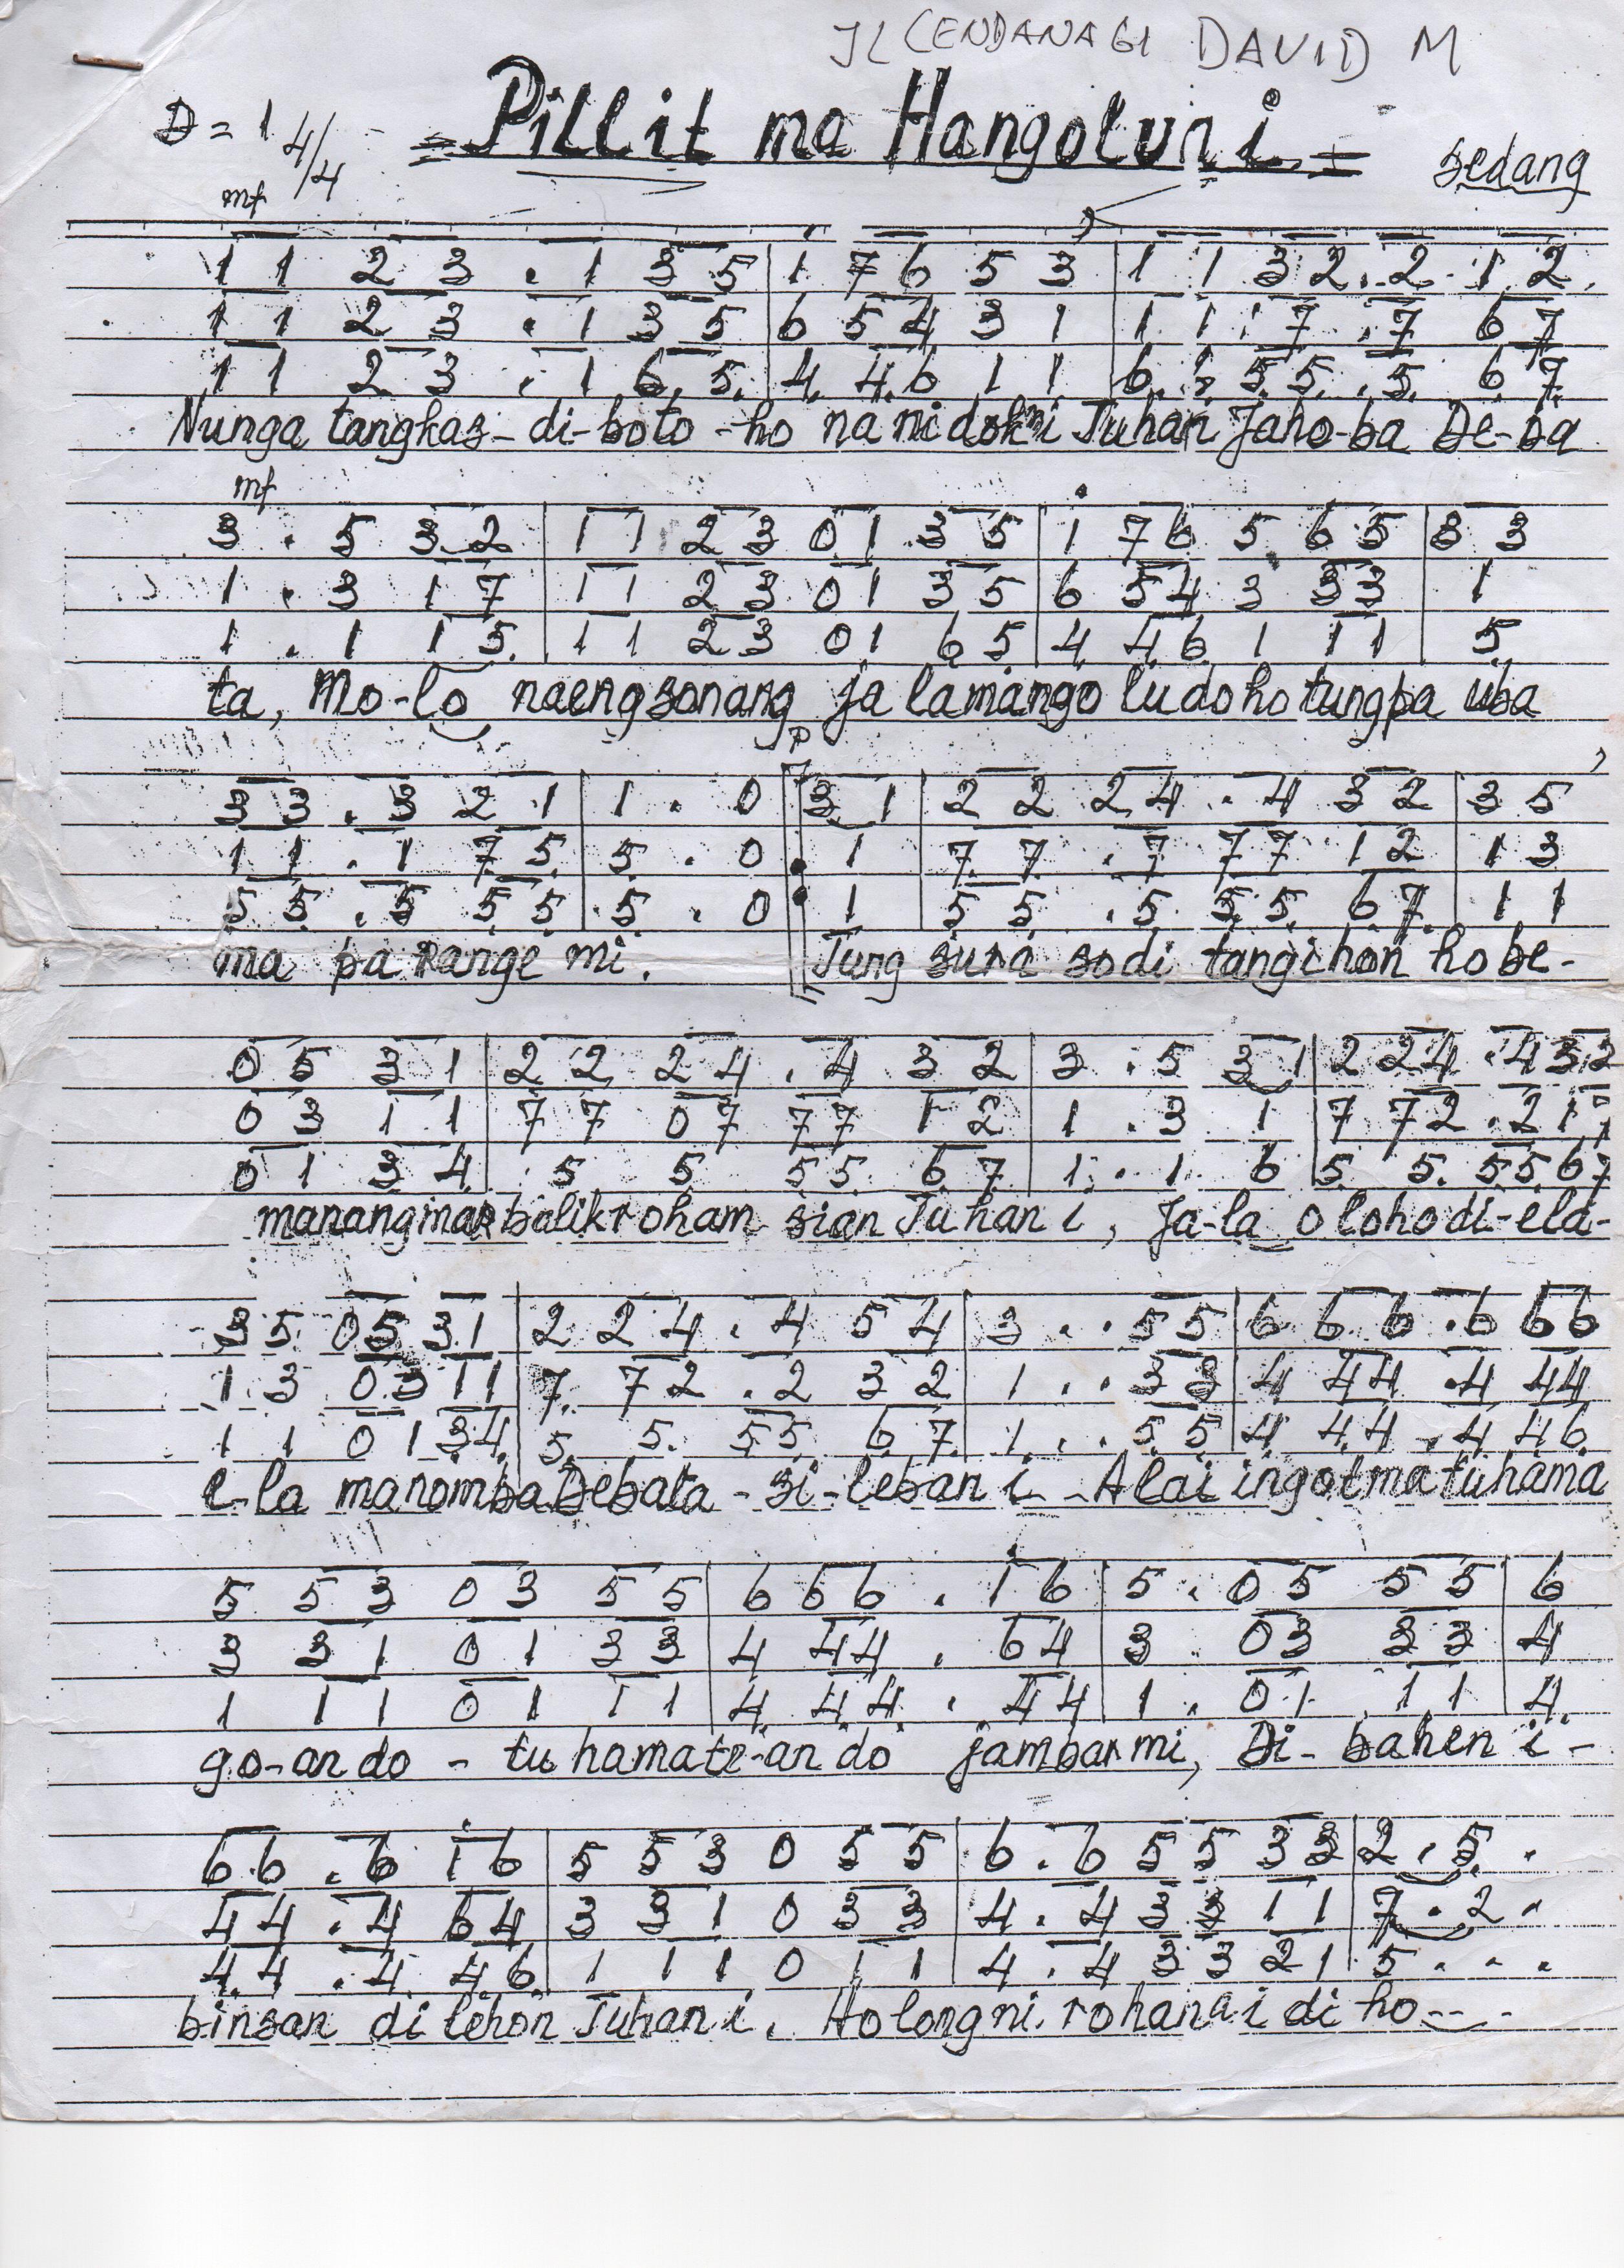 JL CENDANAGI DAVID M
D = 1 4/4 = Pillit ma Hangoluni = sedang
mf
1 1 2 3 . 1 3 5 | 1 7 6 5 3 | 1 1 3 2 . 2 1 2
1 1 2 3 . 1 3 5 | 6 5 4 3 1 | 1 1 7 . 7 6 7
1 1 2 3 . 1 6 5 | 4 4 6 1 1 | 6 6 5 5 . 5 6 7
Nunga tangkas - di-boto - ho na ni dokni Tuhan Jaho-ba De-ba
mf
3 . 5 3 2 | 1 1 2 3 0 1 3 5 | 1 7 6 5 6 5 | 3 3
1 . 3 1 7 | 1 1 2 3 0 1 3 5 | 6 5 4 3 3 3 | 1
1 . 1 1 5 | 1 1 2 3 0 1 6 5 | 4 4 6 1 1 1 | 5
ta, Mo-lo naeng sonang ja la mango lu do ho tung pa uba
p
3 3 . 3 2 1 | 1 . 0 | 3 1 | 2 2 2 4 . 4 3 2 | 3 5
1 1 . 1 7 5 | 5 . 0 : 1 | 7 7 . 7 7 7 1 2 | 1 3
5 5 . 5 5 5 | 5 . 0 : 1 | 5 5 . 5 5 5 6 7 | 1 1
ma pa range mi. Tung sura so di tangihon ho be-
0 5 3 1 | 2 2 2 4 . 4 3 2 | 3 . 5 3 1 | 2 2 4 . 4 3 2
0 3 1 1 | 7 7 0 7 7 7 1 2 | 1 . 3 1 | 7 7 2 . 2 1 7
0 1 3 4 | 5 5 5 5 6 7 | 1 . 1 6 | 5 5 5 5 6 7
manang mar balik roham sian Tuhan i, Ja-la olo ho di-ela-
3 5 0 5 3 1 | 2 2 4 . 4 5 4 | 3 . . 5 5 | 6 6 6 . 6 6 6
1 3 0 3 1 1 | 7 7 2 . 2 3 2 | 1 . . 3 3 | 4 4 4 . 4 4 4
1 1 0 1 3 4 | 5 5 5 5 6 7 | 1 . . 5 5 | 4 4 4 . 4 4 6
e-la manomba Debata - si-leban i - Alai ingot ma tu hama
5 5 3 0 3 5 5 | 6 6 6 . 1 6 | 5 . 0 5 5 5 | 6
3 3 1 0 1 3 3 | 4 4 4 . 6 4 | 3 0 3 3 3 | 4
1 1 1 0 1 1 1 | 4 4 4 . 4 4 | 1 . 0 1 1 1 | 4
go-an do - tu hamate-an do jambar mi, Di-bahen i -
6 6 . 6 1 6 | 5 5 3 0 5 5 | 6 . 6 5 5 3 3 | 2 . 5 .
4 4 . 4 6 4 | 3 3 1 0 3 3 | 4 . 4 3 3 1 1 | 7 . 2 .
4 4 . 4 4 6 | 1 1 1 0 1 1 | 4 . 4 3 3 2 1 | 5 . . .
binsan di lehon Tuhan i. Holong ni rohana i di ho - - -